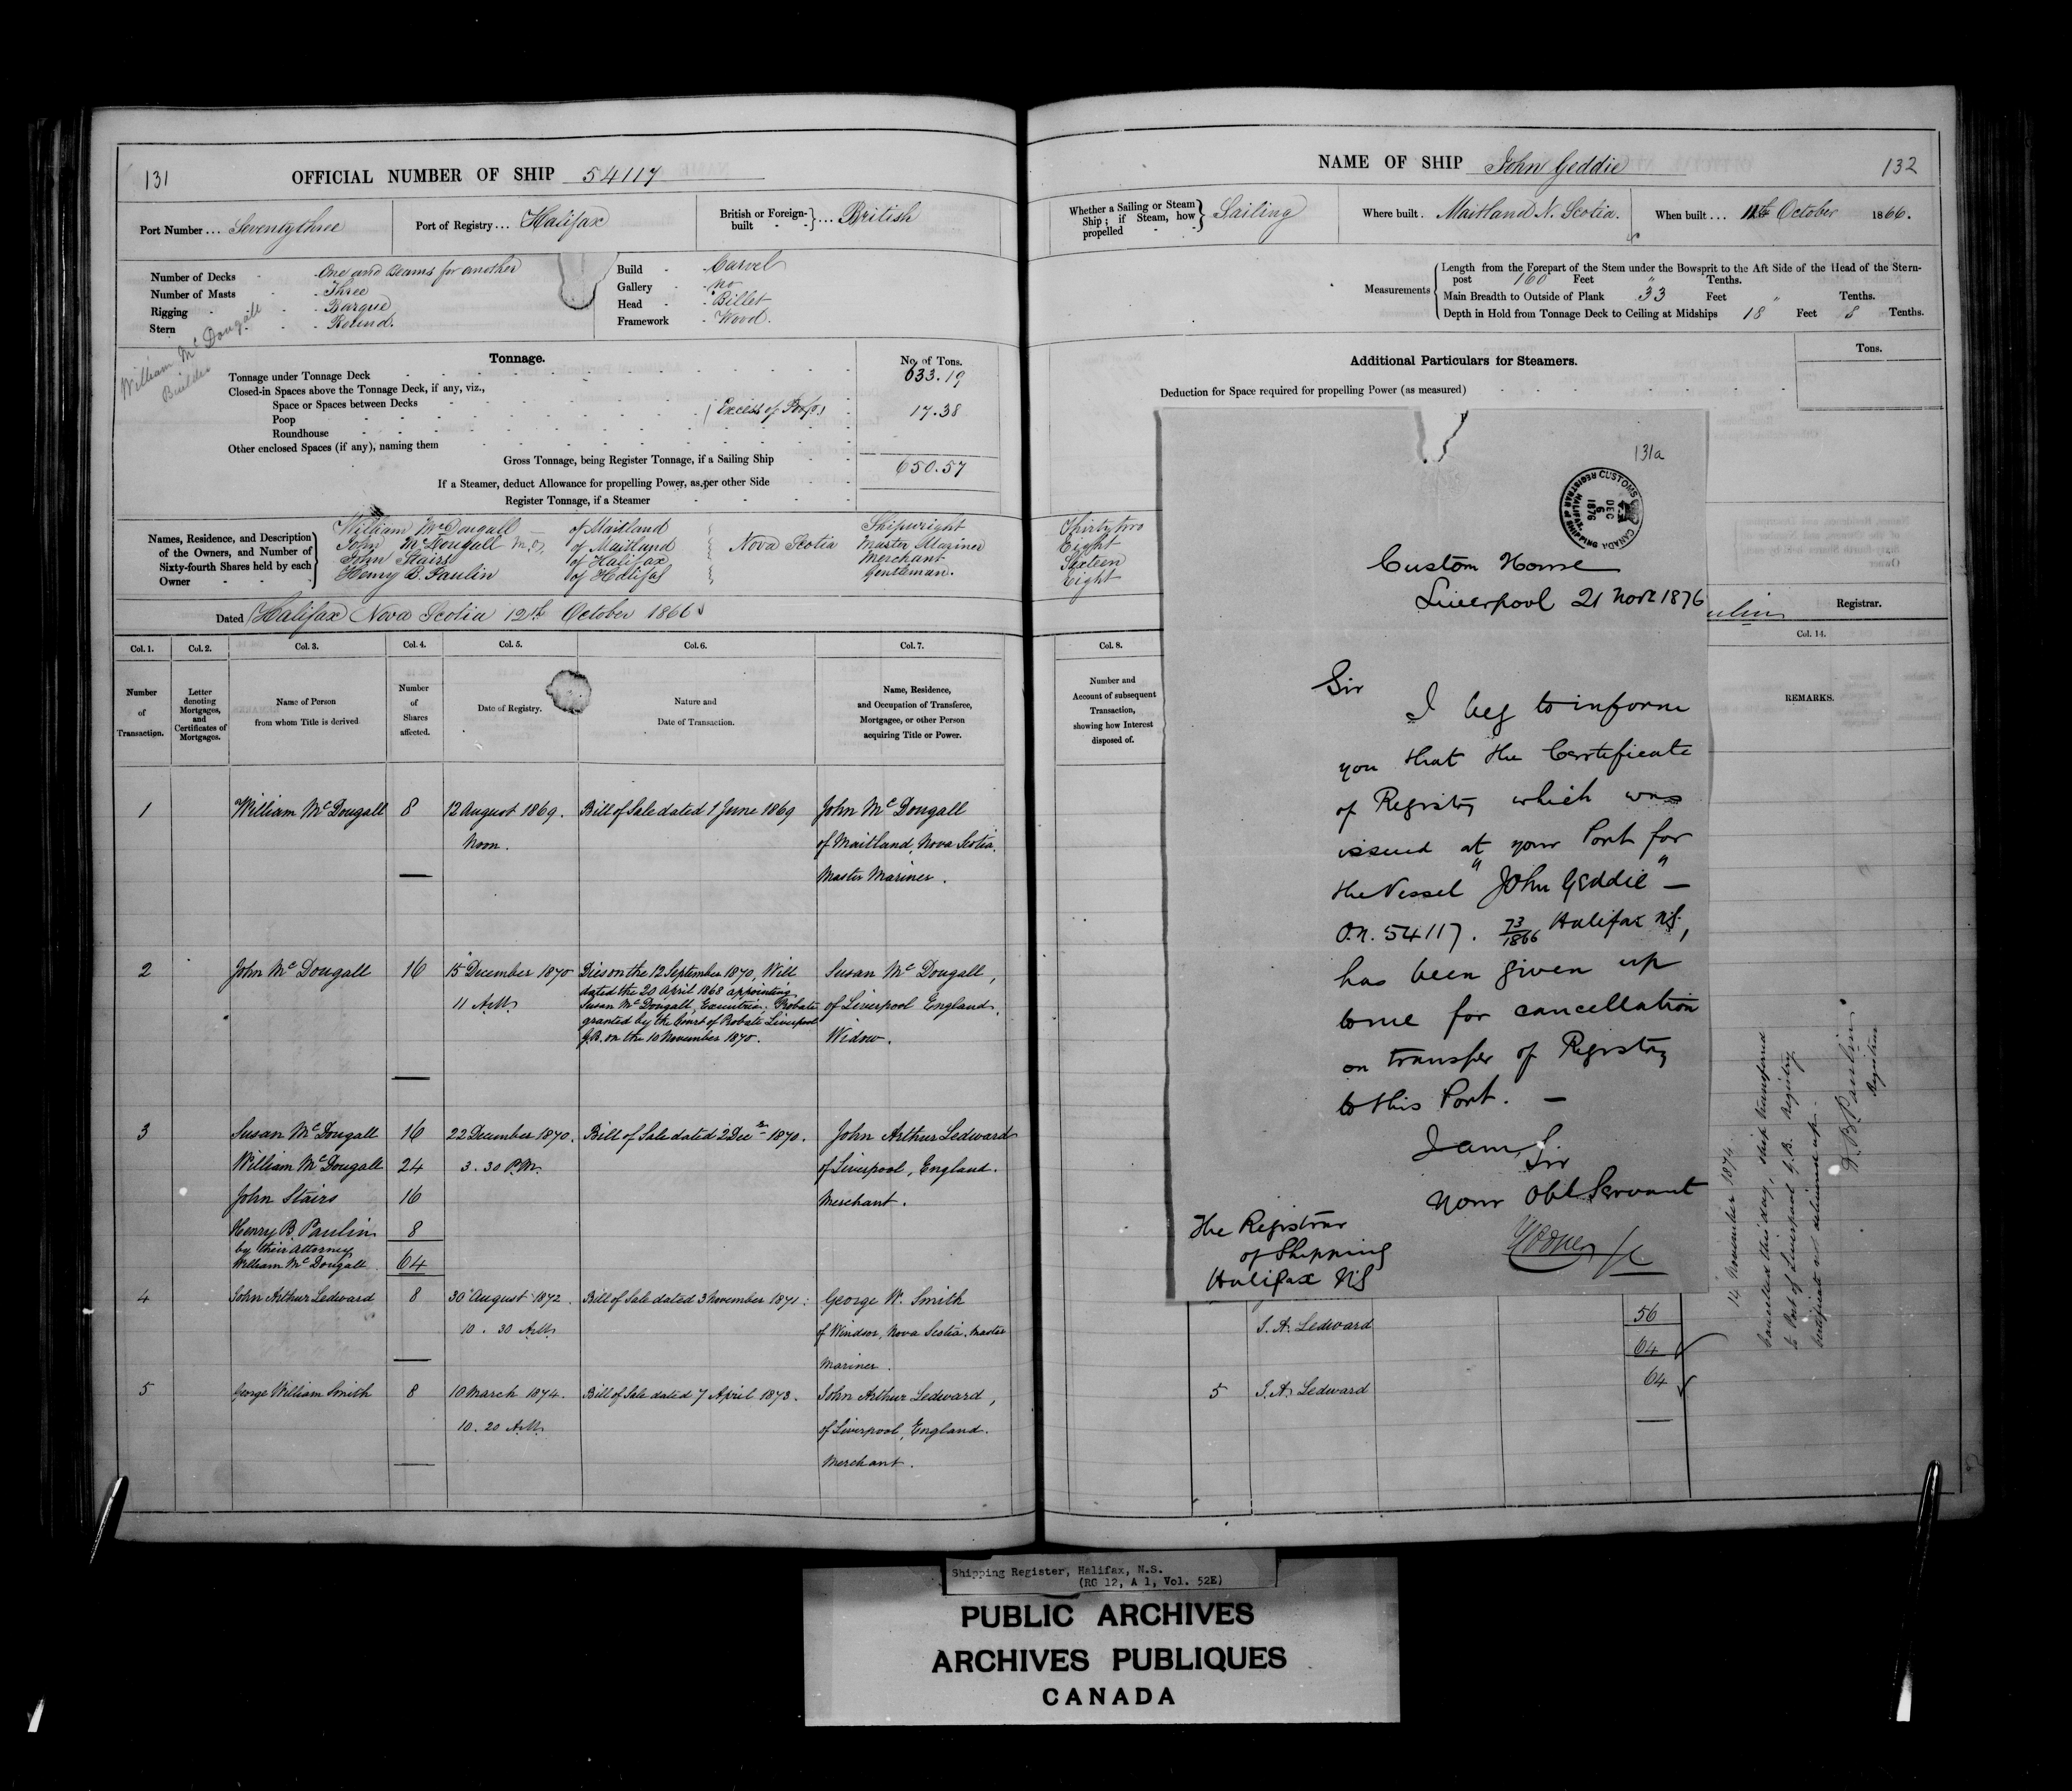 131
OFFICIAL NUMBER OF SHIP 54117
Port Number ... Seventythree
Port of Registry ... Halifax
British or Foreign-built } ... British
Number of Decks - One and Beams for another
Number of Masts - Three
Rigging - Barque
Stern - Round.
Build - Carvel
Gallery - no
Head - Billet
Framework - Wood.
William McDougall
Builder
Tonnage.
No. of Tons.
Tonnage under Tonnage Deck 633.19
Closed-in Spaces above the Tonnage Deck, if any, viz.,
Space or Spaces between Decks
Poop (Excess of Poop) 17.38
Roundhouse
Other enclosed Spaces (if any), naming them
Gross Tonnage, being Register Tonnage, if a Sailing Ship 650.57
If a Steamer, deduct Allowance for propelling Power, as per other Side
Register Tonnage, if a Steamer
Names, Residence, and Description of the Owners, and Number of Sixty-fourth Shares held by each Owner
William McDougall of Maitland Shipwright Thirty two
John McDougall M.O. of Maitland } Nova Scotia Master Mariner Eight
John Stairs of Halifax Merchant Sixteen
Henry B. Paulin of Halifax Gentleman. Eight
Dated Halifax Nova Scotia 12th October 1866
Col. 1. Col. 2. Col. 3. Col. 4. Col. 5. Col. 6. Col. 7.
Number of Transaction.
Letter denoting Mortgages, and Certificates of Mortgages.
Name of Person from whom Title is derived
Number of Shares affected.
Date of Registry.
Nature and Date of Transaction.
Name, Residence, and Occupation of Transferee, Mortgagee, or other Person acquiring Title or Power.
1 William McDougall 8 12 August 1869. Bill of Sale dated 1 June 1869 John McDougall
Noon. of Maitland, Nova Scotia.
Master Mariner.
2 John McDougall 16 15 December 1870 Dies on the 12 September 1870, Will Susan McDougall,
dated the 20 April 1868 appointing
11 A.M. Susan McDougall, Executrix. Probate of Liverpool England,
granted by the Court of Probate Liverpool
G.B. on the 10 November 1870. Widow.
3 Susan McDougall 16 22 December 1870. Bill of Sale dated 2 Decr 1870. John Arthur Ledward
William McDougall 24 3.30 P.M. of Liverpool, England.
John Stairs 16 Merchant.
Henry B. Paulin 8
by their Attorney
William McDougall 64
4 John Arthur Ledward 8 30 August 1872. Bill of Sale dated 3 November 1871: George W. Smith
10.30 A.M. of Windsor, Nova Scotia. Master
Mariner.
5 George William Smith 8 10 March 1874. Bill of Sale dated 7 April 1873. John Arthur Ledward,
10.20 A.M. of Liverpool, England.
Merchant.
NAME OF SHIP John Geddie
132
Whether a Sailing or Steam Ship; if Steam, how propelled } Sailing
Where built. Maitland N. Scotia.
When built ... 11th October 1866.
Measurements
Length from the Forepart of the Stem under the Bowsprit to the Aft Side of the Head of the Stern-
post 160 Feet " Tenths.
Main Breadth to Outside of Plank 33 Feet " Tenths.
Depth in Hold from Tonnage Deck to Ceiling at Midships 18 Feet 8 Tenths.
Additional Particulars for Steamers.
Tons.
Deduction for Space required for propelling Power (as measured)
ulin Registrar.
Col. 8. Col. 14.
Number and Account of subsequent Transaction, showing how Interest disposed of.
REMARKS.
131a
CUSTOMS CANADA
REGISTRAR of SHIPPING HALIFAX
DEC 6 1876
Custom House
Liverpool 21 Novr 1876
Sir
I beg to inform
you that the Certificate
of Registry which was
issued at your Port for
the Vessel "John Geddie" —
O.N. 54117. 73/1866 Halifax N.S.,
has been given up
to me for cancellation
on transfer of Registry
to this Port. —
I am, Sir
Your Obt Servant
The Registrar
of Shipping
Halifax NS
J. A. Ledward 56
64
5 J. A. Ledward 64
Cancelled this day, ship transferred
to Port of Liverpool G.B. Registry.
Certificate
D. B. Paulin
Registrar
Shipping Register, Halifax, N.S.
(RG 12, A 1, Vol. 52E)
PUBLIC ARCHIVES
ARCHIVES PUBLIQUES
CANADA